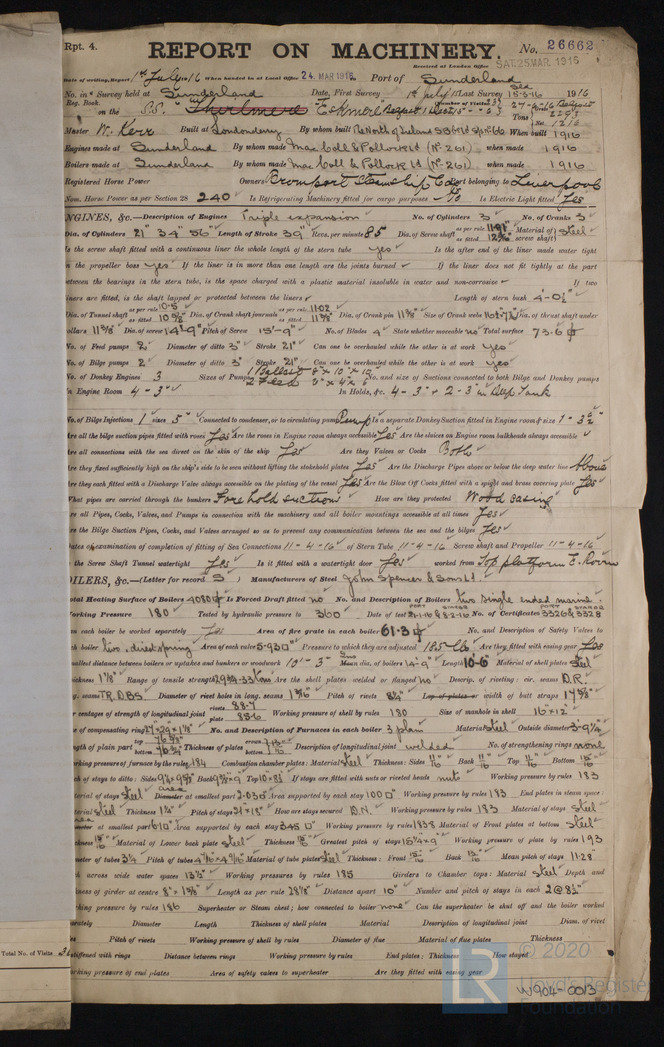 Rpt. 4.
REPORT ON MACHINERY.
No. 26662
Received at London Office SAT. 25 MAR. 1916
Date of writing Report 1st July 1916 When handed in at Local Office 24. MAR 1916 Port of Sunderland
No. in Survey held at Sunderland Date, First Survey 1st July Last Survey 15-3-16 1916
Reg. Book.
on the S.S. "Thirlmere Eskmere"
Master W. Kerr Built at Londonderry By whom built When built 1916
Engines made at Sunderland By whom made MacColl & Pollock Ld (No. 261) when made 1916
Boilers made at Sunderland By whom made MacColl & Pollock Ld (No. 261) when made 1916
Registered Horse Power Owners Bromport Steamship Co Ld Port belonging to Liverpool
Nom. Horse Power as per Section 28 240 Is Refrigerating Machinery fitted for cargo purposes No Is Electric Light fitted Yes
ENGINES, &c.—Description of Engines Triple expansion No. of Cylinders 3 No. of Cranks 3
Dia. of Cylinders 21" 34" 56" Length of Stroke 39" Revs. per minute 85 Dia. of Screw shaft Material of screw shaft steel
Is the screw shaft fitted with a continuous liner the whole length of the stern tube yes Is the after end of the liner made water tight
in the propeller boss yes If the liner is in more than one length are the joints burned If the liner does not fit tightly at the part
between the bearings in the stern tube, is the space charged with a plastic material insoluble in water and non-corrosive If two
liners are fitted, is the shaft lapped or protected between the liners Length of stern bush 4'-0½"
Dia. of Tunnel shaft as per rule 10.5 Dia. of Crank shaft journals as per rule 11.02 Dia. of Crank pin 11⅜" Size of Crank webs Dia. of thrust shaft under
collars 11⅜" Dia. of screw 14'-9" Pitch of Screw 15'-9" No. of Blades 4 State whether moveable no Total surface 73.6
No. of Feed pumps 2 Diameter of ditto 3" Stroke 21" Can one be overhauled while the other is at work yes
No. of Bilge pumps 2 Diameter of ditto 3" Stroke 21" Can one be overhauled while the other is at work yes
No. of Donkey Engines 3 Sizes of Pumps 1 Ballast 8" x 10" x 10" 2 Feed No. and size of Suctions connected to both Bilge and Donkey pumps
In Engine Room 4 - 3" In Holds, &c. 4 - 3" + 2 - 3" in Deep Tank
No. of Bilge Injections 1 sizes 5" Connected to condenser, or to circulating pump Pump Is a separate Donkey Suction fitted in Engine room & size 1 - 3½"
Are all the bilge suction pipes fitted with roses Yes Are the roses in Engine room always accessible Yes Are the sluices on Engine room bulkheads always accessible
Are all connections with the sea direct on the skin of the ship Yes Are they Valves or Cocks Both
Are they fixed sufficiently high on the ship's side to be seen without lifting the stokehold plates Yes Are the Discharge Pipes above or below the deep water line Above
Are they each fitted with a Discharge Valve always accessible on the plating of the vessel Yes Are the Blow Off Cocks fitted with a spigot and brass covering plate Yes
What pipes are carried through the bunkers Fore hold suction How are they protected Wood casing
Are all Pipes, Cocks, Valves, and Pumps in connection with the machinery and all boiler mountings accessible at all times Yes
Are the Bilge Suction Pipes, Cocks, and Valves arranged so as to prevent any communication between the sea and the bilges Yes
Dates of examination of completion of fitting of Sea Connections 11-4-16 of Stern Tube 11-4-16 Screw shaft and Propeller 11-4-16
Is the Screw Shaft Tunnel watertight Yes Is it fitted with a watertight door Yes worked from Top platform E. Room
BOILERS, &c.—(Letter for record S) Manufacturers of Steel John Spencer & Sons Ld.
Total Heating Surface of Boilers 4080 Is Forced Draft fitted no No. and Description of Boilers two single ended marine
Working Pressure 180 Tested by hydraulic pressure to 360 Date of test No. of Certificates 3326 & 3328
Can each boiler be worked separately Yes Area of fire grate in each boiler 61.3 No. and Description of Safety Valves to
each boiler two, direct spring Area of each valve 5.930 Pressure to which they are adjusted 185 lb Are they fitted with easing gear Yes
Smallest distance between boilers or uptakes and bunkers or woodwork 10'-3" Mean dia. of boilers 14'-9" Length 10'-6" Material of shell plates Steel
Thickness 1⅛" Range of tensile strength Are the shell plates welded or flanged no Descrip. of riveting: cir. seams D.R.
long. seams TR.DBS Diameter of rivet holes in long. seams Pitch of rivets Lap of plates or width of butt straps
Per centages of strength of longitudinal joint rivets 88.7 plate 85.6 Working pressure of shell by rules 180 Size of manhole in shell 16" x 12"
Size of compensating ring No. and Description of Furnaces in each boiler 3 plain Material steel Outside diameter 3'-9¼"
Length of plain part top bottom Thickness of plates crown bottom Description of longitudinal joint welded No. of strengthening rings none
Working pressure of furnace by the rules 184 Combustion chamber plates: Material steel Thickness: Sides Back Top Bottom
Pitch of stays to ditto: Sides Back Top If stays are fitted with nuts or riveted heads nuts Working pressure by rules 183
Material of stays steel area at smallest part 2.030 Area supported by each stay 100 Working pressure by rules 183 End plates in steam space
Material steel Thickness Pitch of stays How are stays secured D.N. Working pressure by rules 183 Material of stays Steel
Diameter at smallest part Area supported by each stay 345 Working pressure by rules Material of Front plates at bottom Steel
Thickness Material of Lower back plate Steel Thickness Greatest pitch of stays Working pressure of plate by rules 193
Diameter of tubes 3¼ Pitch of tubes Material of tube plates Steel Thickness: Front Back Mean pitch of stays 11.28
Pitch across wide water spaces 13½" Working pressures by rules 185 Girders to Chamber tops: Material Steel Depth and
thickness of girder at centre Length as per rule Distance apart 10" Number and pitch of stays in each 2 @ 8½"
Working pressure by rules 186 Superheater or Steam chest; how connected to boiler none Can the superheater be shut off and the boiler worked
separately Diameter Length Thickness of shell plates Material Description of longitudinal joint Diam. of rivet
holes Pitch of rivets Working pressure of shell by rules Diameter of flue Material of flue plates Thickness
If stiffened with rings Distance between rings Working pressure by rules End plates: Thickness How stayed
Working pressure of end plates Area of safety valves to superheater Are they fitted with easing gear
Total No. of Visits
W904-0013
© 2020
LR
Lloyd's Register
Foundation